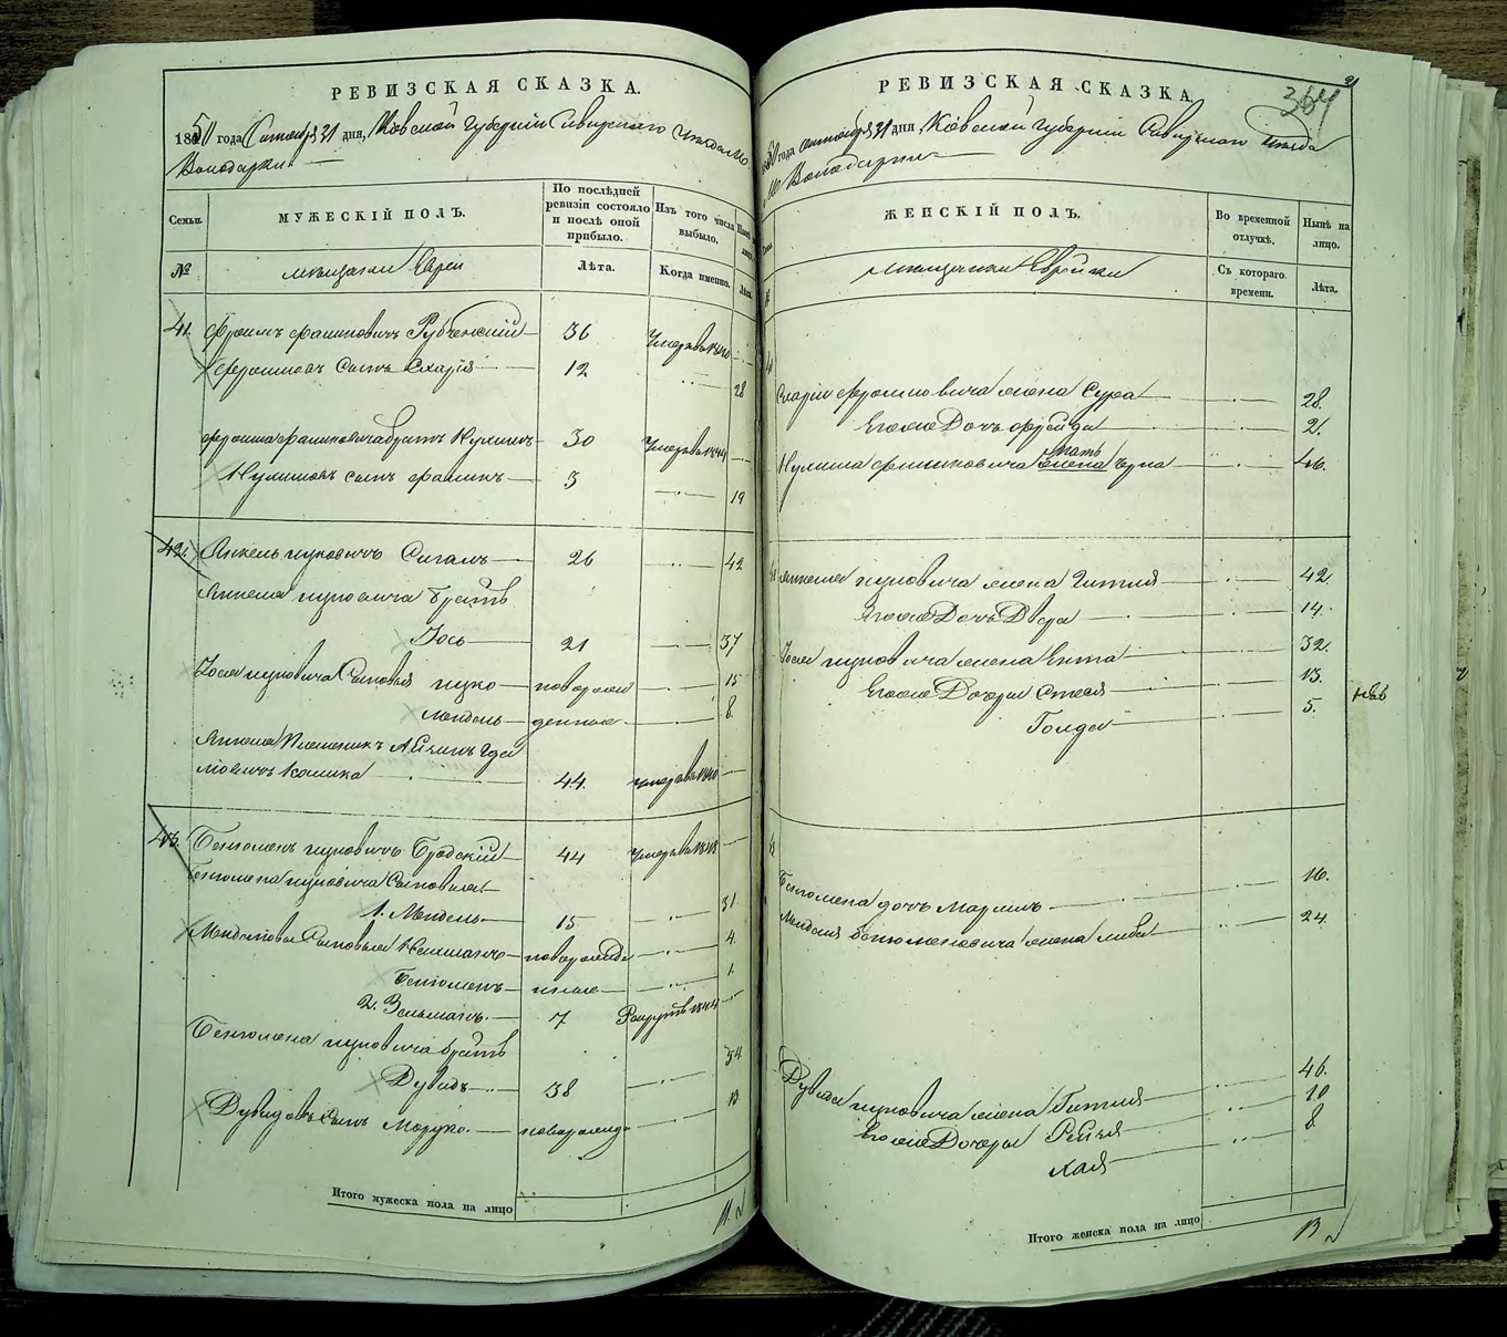 РЕВИЗСКАЯ СКАЗКА.
1850 года Октября 31 дня, Кіевской Губерніи Сквирскаго уѣзда М.
Володарки
Семьи.
МУЖЕСКІЙ ПОЛЪ.
По послѣдней ревизіи состояло и послѣ оной прибыло.
Изъ того числа выбыло.
№
мѣщане Евреи
Лѣта.
Когда именно.
Лѣта.
41. Фроимъ Фашиковичъ Рубченскій 36 Умеръ въ 1840
Фроимовъ Сынъ Схарія 12 28
Фроима Фашиковича братъ Нухимъ 30 Умеръ въ 1844
Нухимовъ сынъ Фашикъ 3 19
42. Янкель Ицковичъ Сигалъ 26 42
Янкеля Ицковича братъ
Іось 21 37
Іося Ицковича Сыновья Ицко новорож 15
Мендель денные 8.
Янкеля Племянникъ
44 умеръ въ 1840
43. Беніоменъ Ицковичъ Бродскій 44 Умеръ въ 1848
Беніомена Ицковича Сыновья
1. Мендель 15 31
Менделевы Сыновья новорожде 4
Беніоменъ нные 1
2. Зельманъ 7 Рекрутъ 1844
Беніомена Ицковича братъ
Дувидъ 38 54
Дувидовъ Сынъ Мошко новорожд 13
Итого мужеска пола на лицо 11.
РЕВИЗСКАЯ СКАЗКА.
364
года октября 31 дня Кіевской Губерніи Сквирскаго уѣзда
М. Володарки
ЖЕНСКІЙ ПОЛЪ.
Во временной отлучкѣ.
Нынѣ на лицо.
№
мѣщанки Еврейки
Съ котораго времени.
Лѣта.
Схаріи Фроимовича жена Сура 28.
Его же Дочь Фрейда 2.
мать
Нухима Фашиковича жена Черна 46.
Янкеля Ицковича жена Гитля 42
Его же Дочь Двера 14.
Іося Ицковича жена Ента 32.
Его же Дочери Стеся 13.
Голда 5.
Беніомена дочь Маріемъ 16.
Менделя Беніоменовича жена Либа 24.
Дувида Ицковича жена Гитля 46.
Его же Дочери Рейзя 10
Хая 8
Итого женска пола на лицо 13